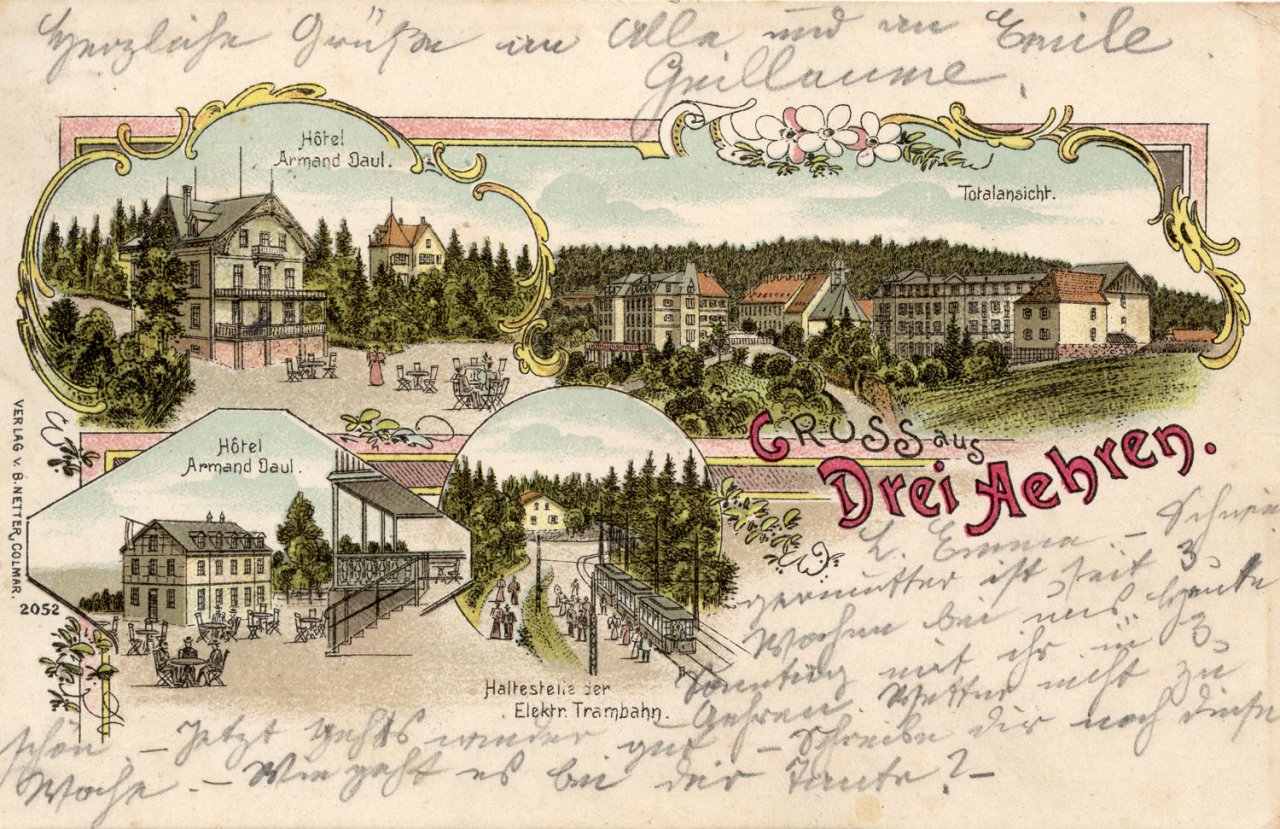 Herzliche Grüße an Alle und an Emile
Guillaume.
Hôtel
Armand Daul.
Totalansicht.
Hôtel
Armand Daul.
Haltestelle der
Elektr. Trambahn.
GRUSS aus
Drei Aehren.
VERLAG v. B. NETTER, COLMAR.
2052
L. Emma – Schwie
germutter ist seit 3
Wochen bei uns. Heute
Sonntag mit ihr in 3
Aehren. Wetter nicht zu
schön. – Jetzt gehts wieder gut – Schreibe dir noch diese
Woche. – Wie geht es bei der Tante? –